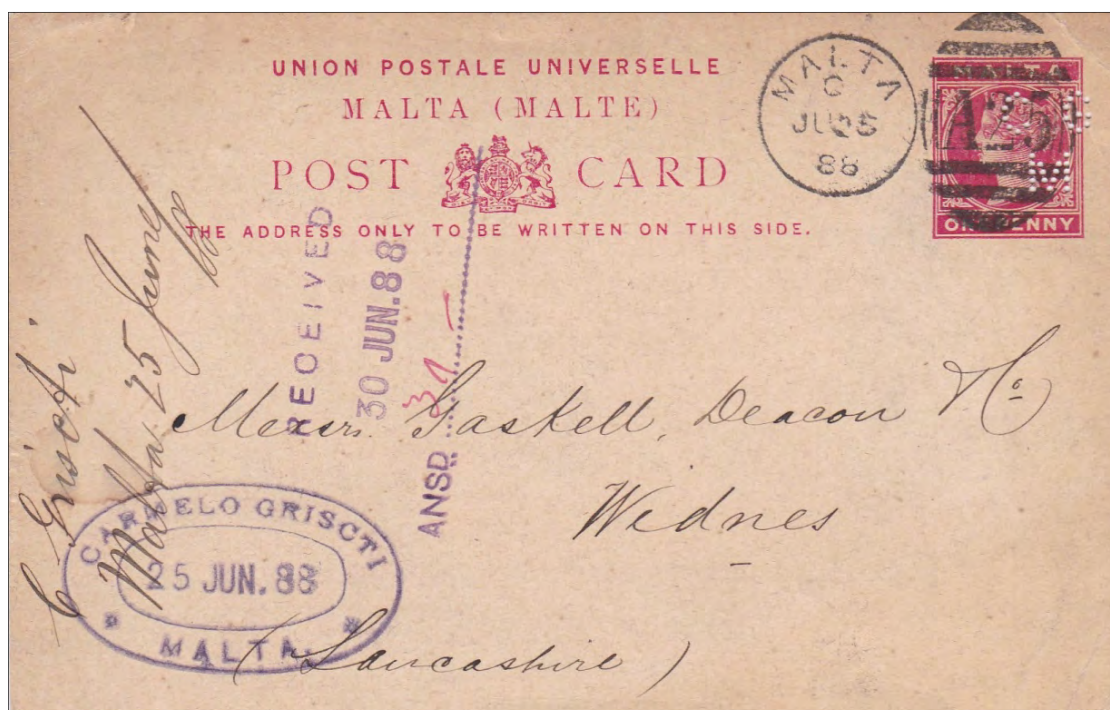 UNION POSTALE UNIVERSELLE
MALTA (MALTE)
POST CARD
THE ADDRESS ONLY TO BE WRITTEN ON THIS SIDE.
MALTA
C
JU 25
88
A25
MALTA
ONE PENNY
CG
M
RECEIVED
30 JUN. 88
ANSD
C Griscti
Malta, 25 June / 88
Messrs. Gaskell, Deacon & Co
Widnes
(Lancashire)
CARMELO GRISCTI
25 JUN. 88
MALTA